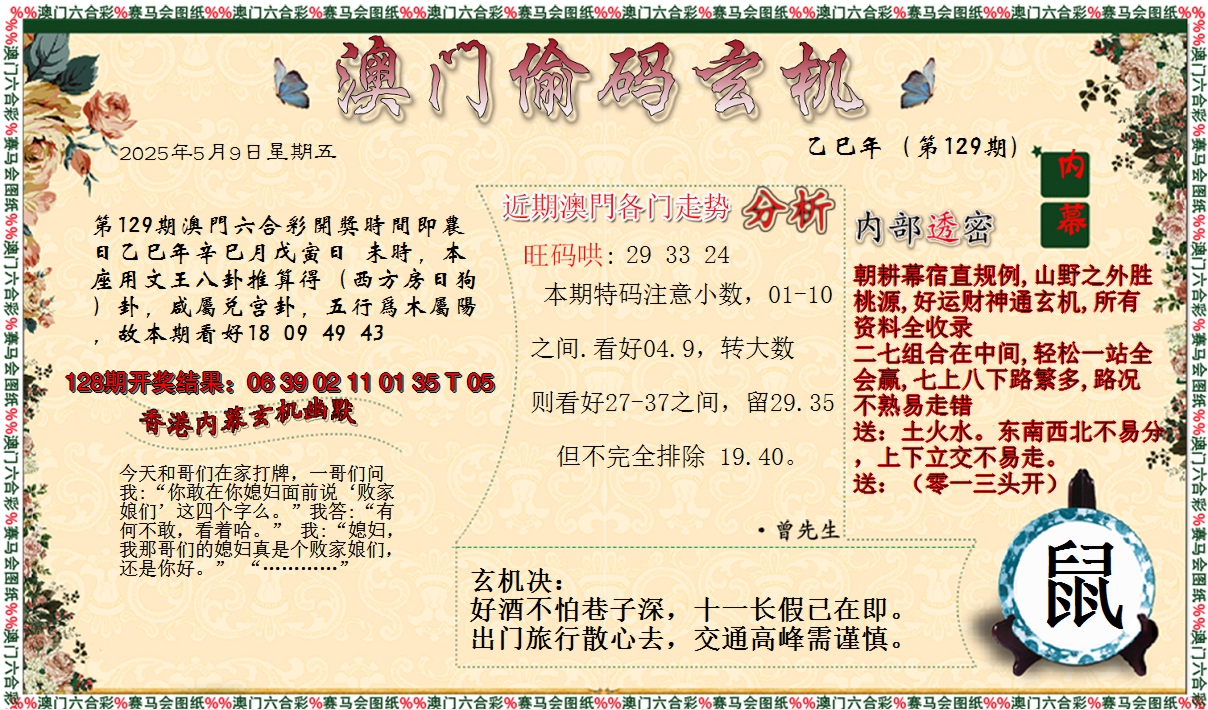 %%澳门六合彩%赛马会图纸%%澳门六合彩%赛马会图纸%%澳门六合彩%赛马会图纸%%澳门六合彩%赛马会图纸%%澳门六合彩%赛马会图纸%%澳门六合彩%赛马会图纸%%
澳门偷码玄机
2025年5月9日星期五
乙巳年（第129期）
内
幕
第129期澳門六合彩開獎時間即農
日乙巳年辛巳月戊寅日 未時，本
座用文王八卦推算得（西方房日狗
）卦，咸屬兑宫卦，五行爲木屬陽
，故本期看好18 09 49 43
128期开奖结果：06 39 02 11 01 35 T 05
香港内幕玄机幽默
今天和哥们在家打牌，一哥们问
我:“你敢在你媳妇面前说‘败家
娘们’这四个字么。”我答:“有
何不敢，看着哈。” 我:“媳妇，
我那哥们的媳妇真是个败家娘们，
还是你好。” “…………”
近期澳門各门走势 分析
旺码哄: 29 33 24
本期特码注意小数，01-10
之间.看好04.9，转大数
则看好27-37之间，留29.35
但不完全排除 19.40。
·曾先生
内部透密
朝耕幕宿直规例,山野之外胜
桃源,好运财神通玄机,所有
资料全收录
二七组合在中间,轻松一站全
会赢,七上八下路繁多,路况
不熟易走错
送：土火水。东南西北不易分
，上下立交不易走。
送：（零一三头开）
玄机决：
好酒不怕巷子深，十一长假已在即。
出门旅行散心去，交通高峰需谨慎。
鼠
%%澳门六合彩%赛马会图纸%%澳门六合彩%赛马会图纸%%澳门六合彩%赛马会图纸%%澳门六合彩%赛马会图纸%%澳门六合彩%赛马会图纸%%澳门六合彩%赛马会图纸%%